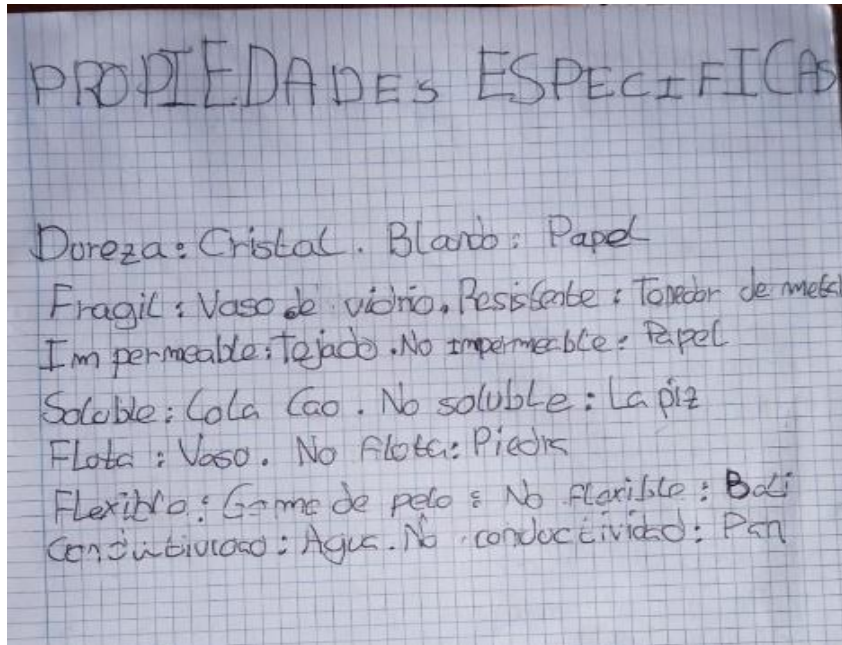 PROPIEDADES ESPECIFICAS
Dureza: Cristal. Blando: Papel
Fragil: Vaso de vidrio. Resistente: Tenedor de metal
Impermeable: Tejado. No impermeable: Papel
Soluble: Cola Cao. No soluble: Lapiz
Flota: Vaso. No flota: Piedra
Flexible: Goma de pelo: No flexible: Boli
Conductividad: Agua. No conductividad: Pan